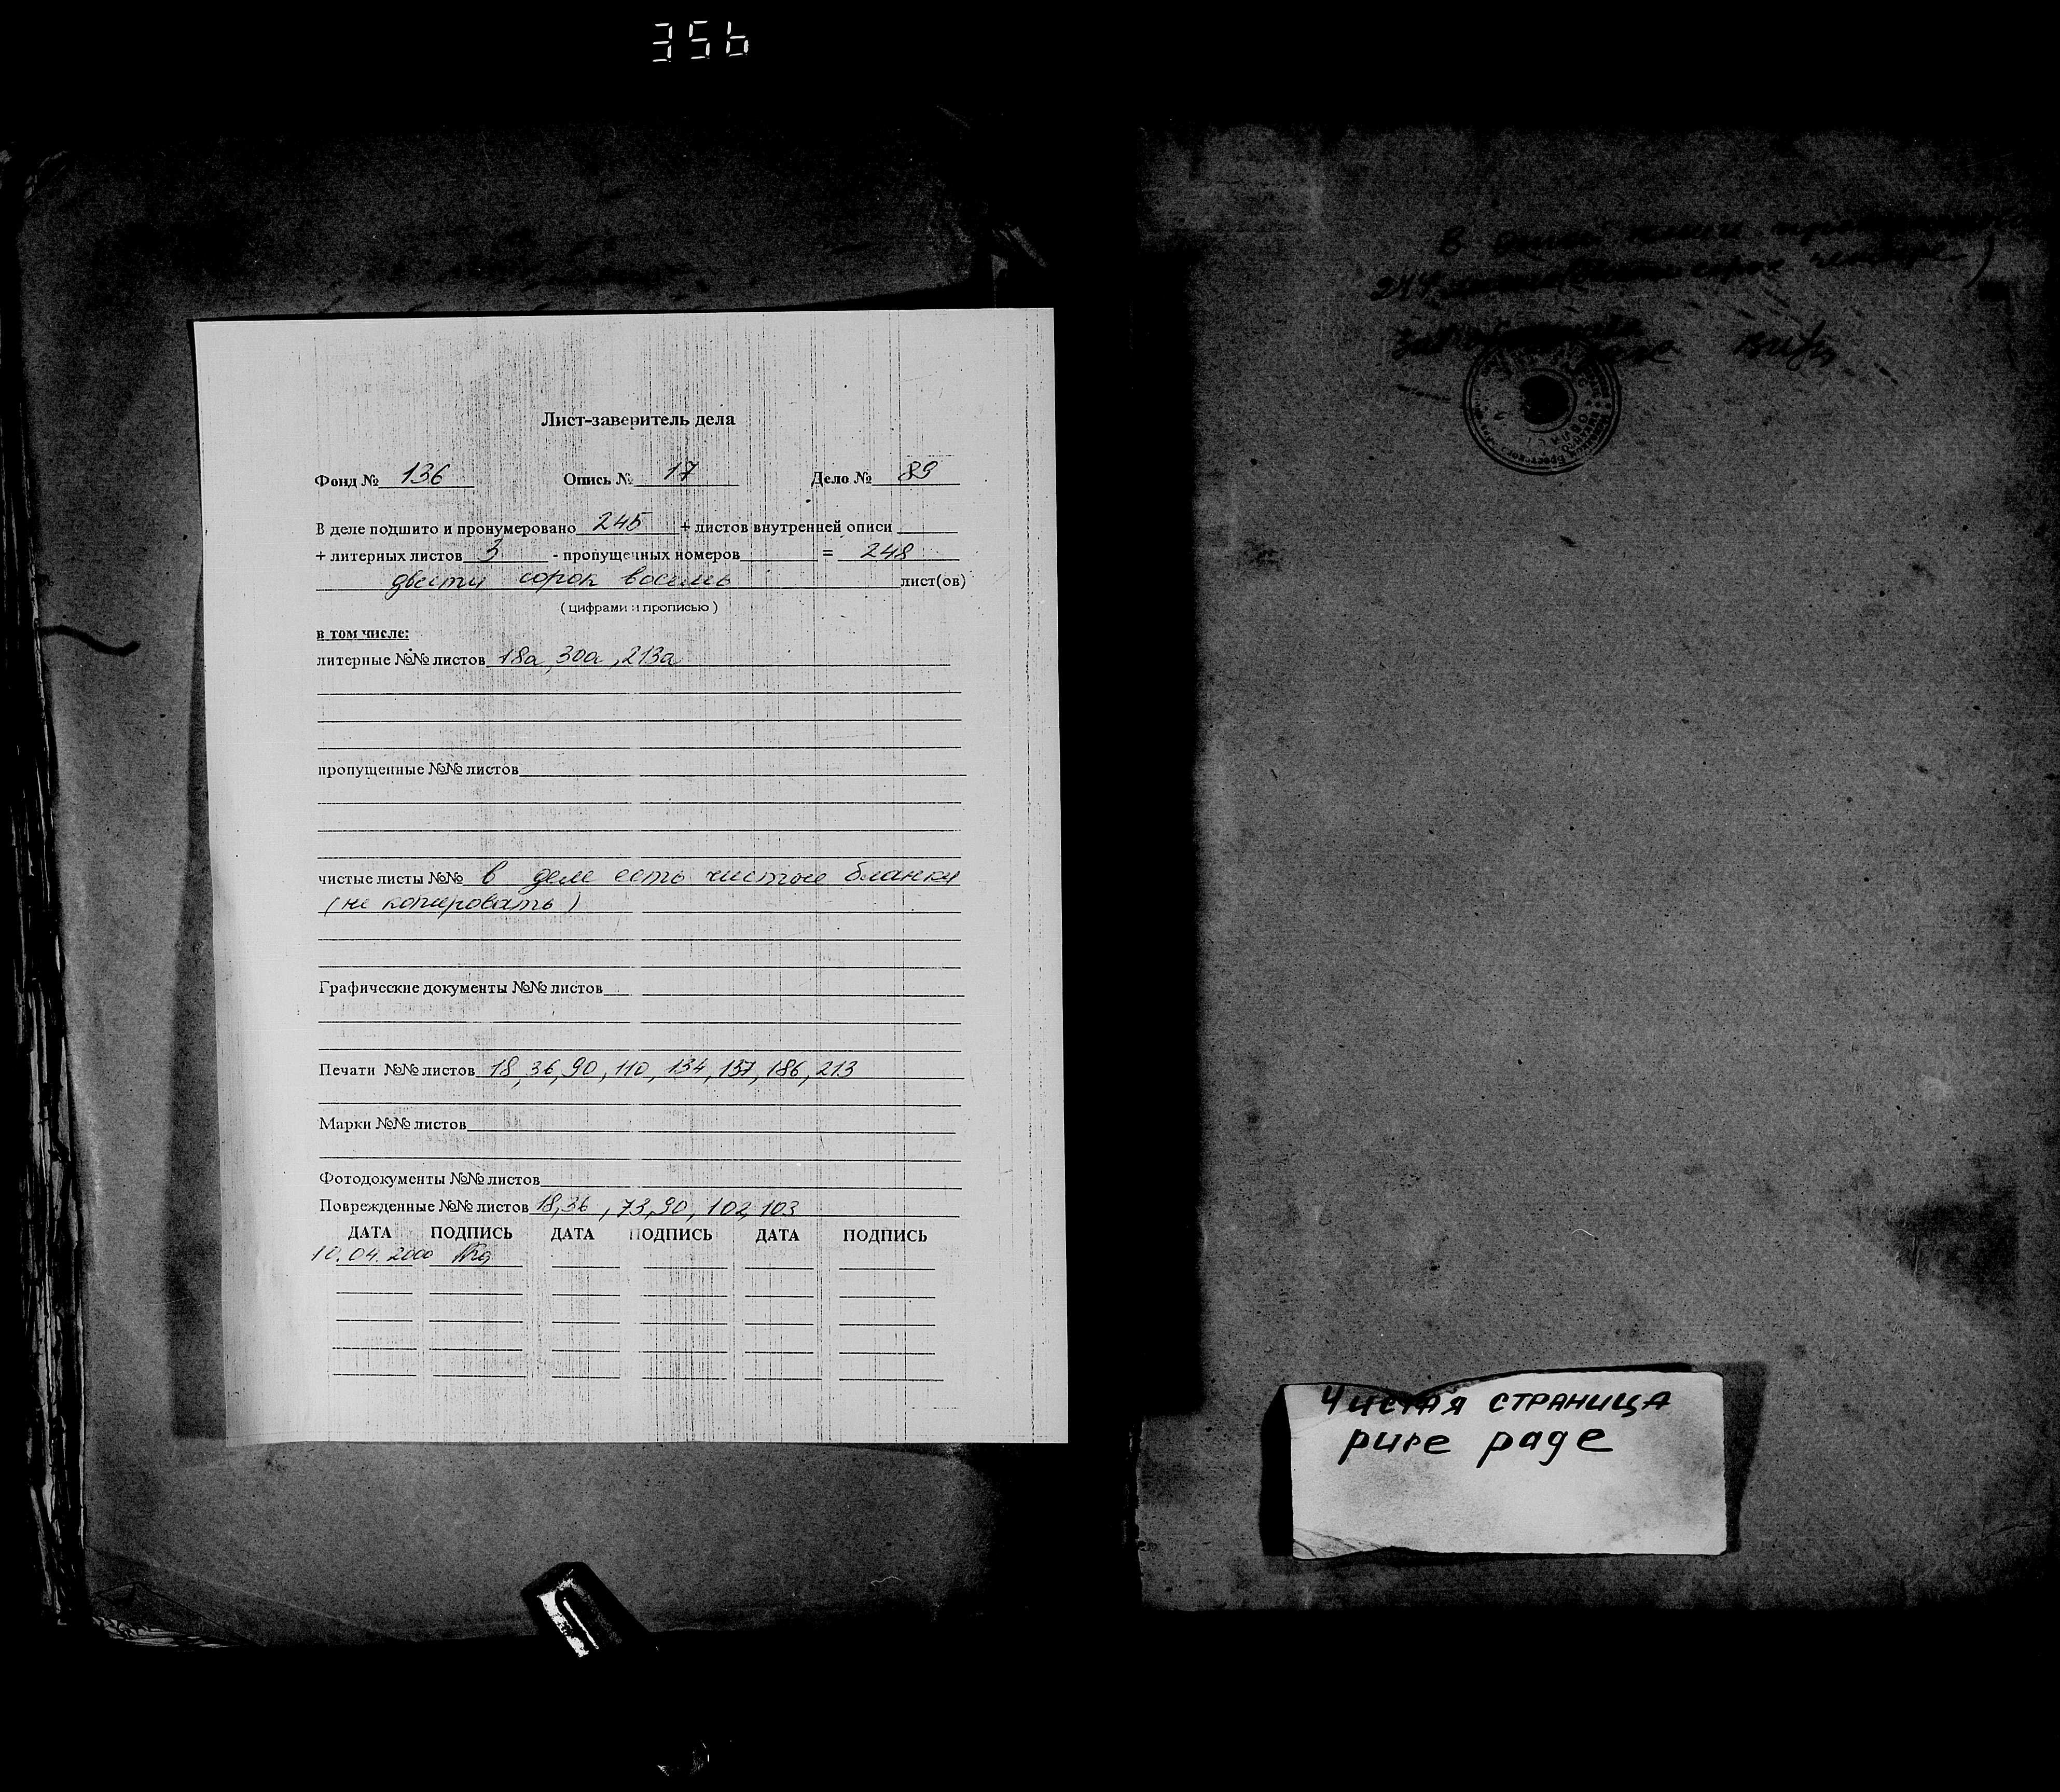 356
Лист-заверитель дела
Фонд № 136 Опись № 17 Дело № 89
В деле подшито и пронумеровано 245 + листов внутренней описи
+ литерных листов 3 - пропущенных номеров = 248
двести сорок восемь лист(ов)
( цифрами и прописью )
в том числе:
литерные №№ листов 18а, 30а, 213а
пропущенные №№ листов
чистые листы №№ в деле есть чистые бланки
(не копировать)
Графические документы №№ листов
Печати №№ листов 18, 36, 90, 110, 134, 157, 186, 213
Марки №№ листов
Фотодокументы №№ листов
Поврежденные №№ листов 18, 36, 73, 90, 102, 103
ДАТА ПОДПИСЬ ДАТА ПОДПИСЬ ДАТА ПОДПИСЬ
10.04.2000
В
244 сорок четыре)
Чистая страница
pure page